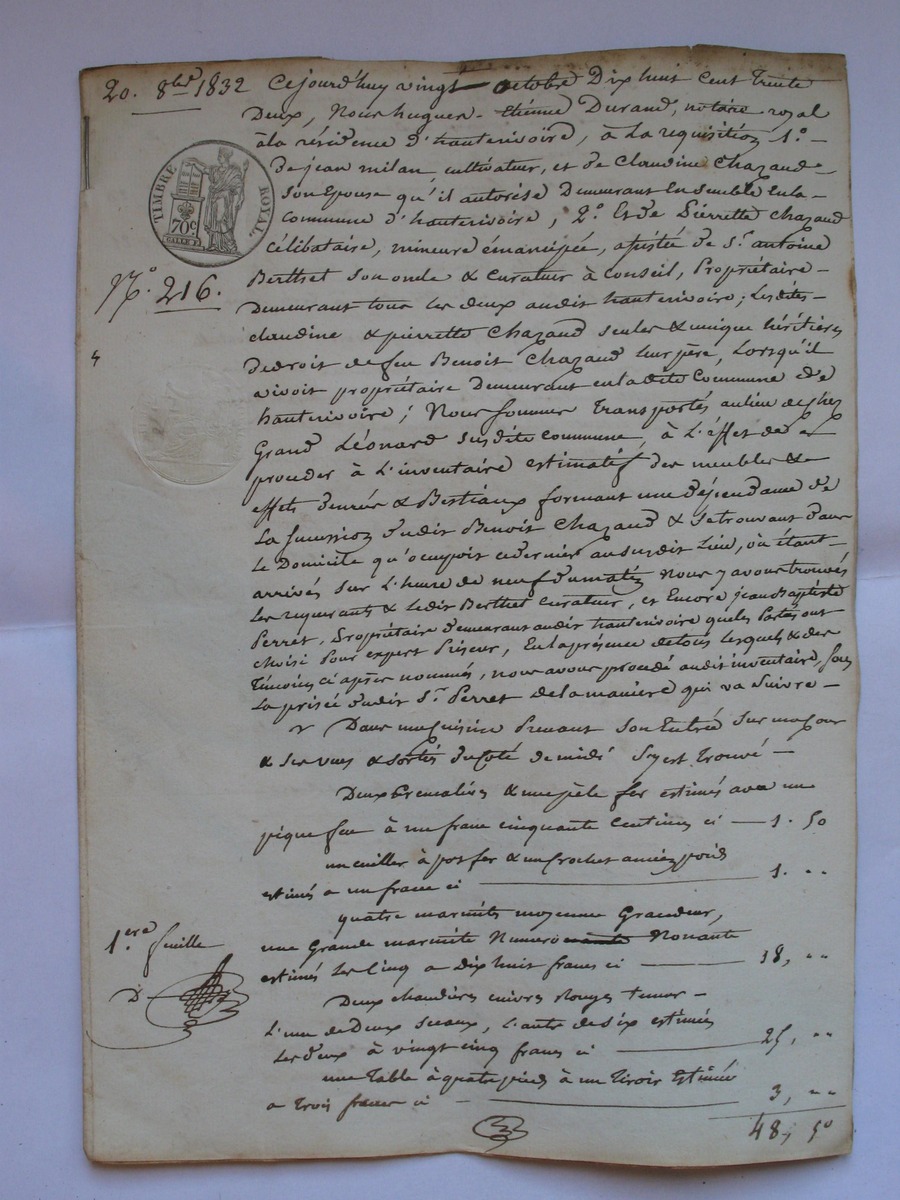 20. 8bre 1832
Cejourd'huy vingt octobre Dix huit Cent Trente
Deux, Nous hugues-Etienne Durand, notaire royal
à la résidence d'hauterivoire, à La requisition 1.°
De jean milan cultivateur, et de Claudine Chazaud
son Epouse qu'il autorise Demeurant Ensemble En la
commune d'hauterivoire, 2.° Et de Pierrette Chazaud
Célibataire, mineure émancipée, assistée de S.r antoine
Berthet son oncle & curateur à conseil, Propriétaire
Demeurant tous les deux audit hauterivoire; Lesdites
claudine & pierrette Chazaud seules & unique héritières
de droit de feu Benoit Chazaud leur père, Lorsqu'il
vivoit propriétaire Demeurant en ladite Commune de
hauterivoire; Nous sommes Transportés au lieu de chez
Grand Léonard susdite commune, à L'effet de
proceder à L'inventaire estimatif des meubles &
effets denrées & Bestiaux formant une dépendance de
La succession dudit Benoit Chazaud & se trouvant dans
Le Domicile qu'occupoit ce dernier au susdit Lieu, où étant
arrivés sur L'heure de neuf du matin Nous y avons trouvés
Les requerants & Ledit Berthet curateur, et Encore jean Baptiste
Perret, Propriétaire demeurant audit hauterivoire que les Parties ont
choisi Pour expert Priseur, En la présence de tous lesquels & des
Témoins ci après nommés, nous avons procédé audit inventaire, sous
La prisée dudit S.r Perret de la manière qui va suivre
Dans une Cuisine Prenant son Entrée sur une Cour
& ses vues & sorties du Coté de midi s'y est Trouvé
Deux Cremalières & une pèle fer estimés avec un
pique feu à un franc cinquante centimes ci 1. 50
un cuiller à pot fer & un crochet à poids
estimés a un franc ci 1. "
quatre marmites moyenne Grandeur,
une Grande marmite Numero Nonante
estimés Les cinq a Dix huit francs ci 18, "
Deux chaudières cuivre Rouge tenant
L'une de Deux seaux, L'autre de six estimées
Les deux à vingt cinq francs ci 25, "
une Table à quatre pieds à un Tiroir Estimée
a Trois francs ci 3, "
48, 50
TIMBRE ROYAL
70c.
N.° 216.
4
1.ere feuille
D